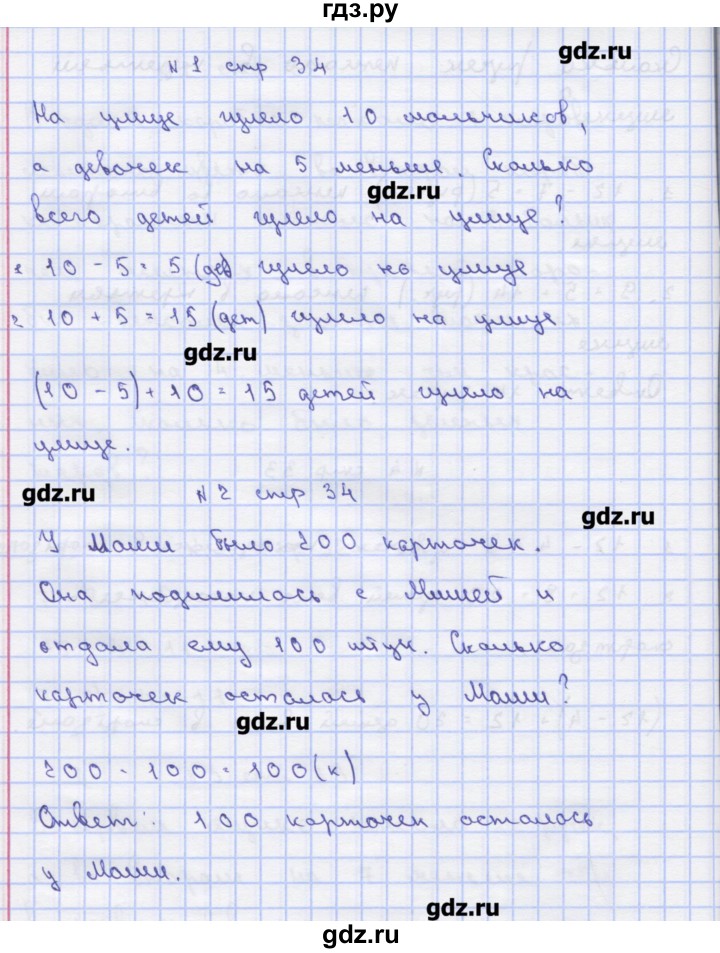 гдз.ру
gdz.ru
№ 1 стр 34
На улице гуляло 10 мальчиков,
а девочек на 5 меньше. Сколько
gdz.ru
всего детей гуляло на улице?
1 10 - 5 = 5 (дев) гуляло на улице
2 10 + 5 = 15 (дет) гуляло на улице
gdz.ru
(10 - 5) + 10 = 15 детей гуляло на
улице.
gdz.ru
№ 2 стр 34
gdz.ru
У Маши было 200 карточек.
Она поделилась с Мишей и
отдала ему 100 штук. Сколько
карточек осталось у Маши?
gdz.ru
200 - 100 = 100 (к)
Ответ: 100 карточек осталось
у Маши.
gdz.ru
gdz.ru